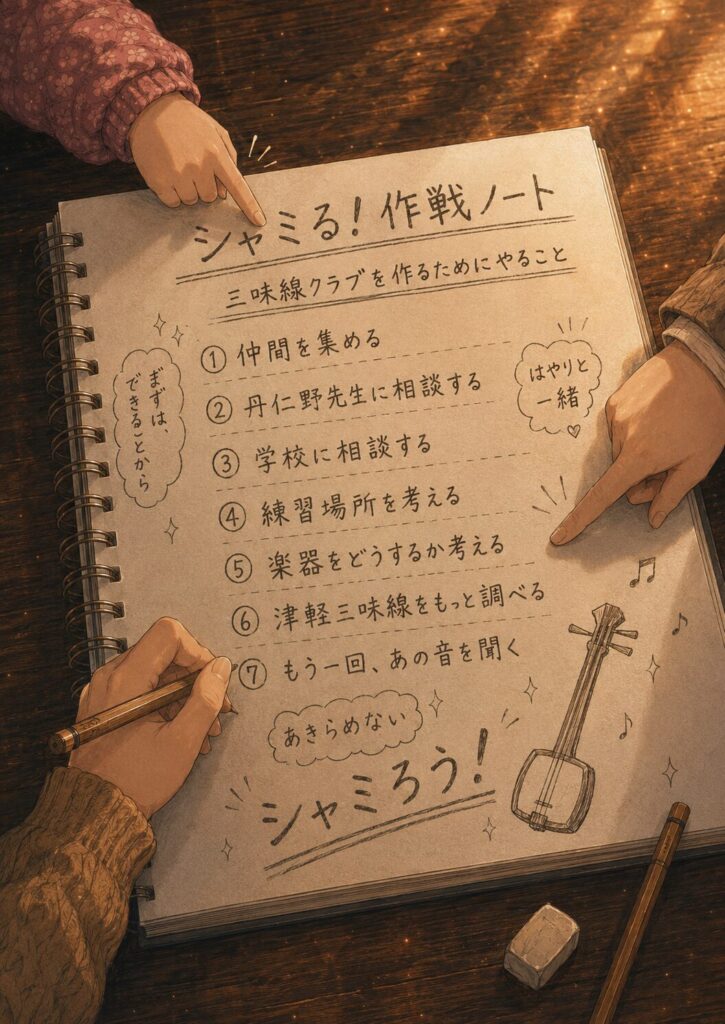 シャミる！作戦ノート
三味線クラブを作るためにやること
① 仲間を集める
② 丹仁野先生に相談する
③ 学校に相談する
④ 練習場所を考える
⑤ 楽器をどうするか考える
⑥ 津軽三味線をもっと調べる
⑦ もう一回、あの音を聞く
まずは、
できることから
はやりと
一緒
あきらめない
シャミろう！